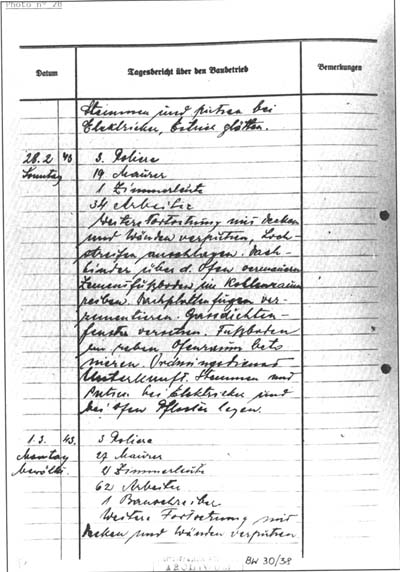 Photo n° 28
Datum Tagesbericht über den Baubetrieb Bemerkungen
Stemmen und putzen bei
Elektriker, Estrich glätten.
28.2 43. 3. Poliere
Sonntag 19 Maurer
1 Zimmerleute
34 Arbeiter
Weitere Fortsetzung mit Decken
und Wänden verputzen,
streifen ausschlagen. Dach-
binder über d. Ofen vermauern
Zementfußboden im Kohlenraum
reiben. Dachplattenfugen ver-
zementieren. Gasdichten-
fenster versetzen. Fußboden
reiben. Ofenraum beto
nieren. Ordnungsdienst
Unterkunft. Stemmen und
Putzen bei Elektriker und
bei Ofen Pflaster legen.
1.3. 43. 3 Poliere
Montag 27 Maurer
bewölkt. 2 Zimmerleute
62 Arbeiter
1 Bauschreiber
Weitere Fortsetzung mit
Decken und Wänden verputzen
BW 30/38